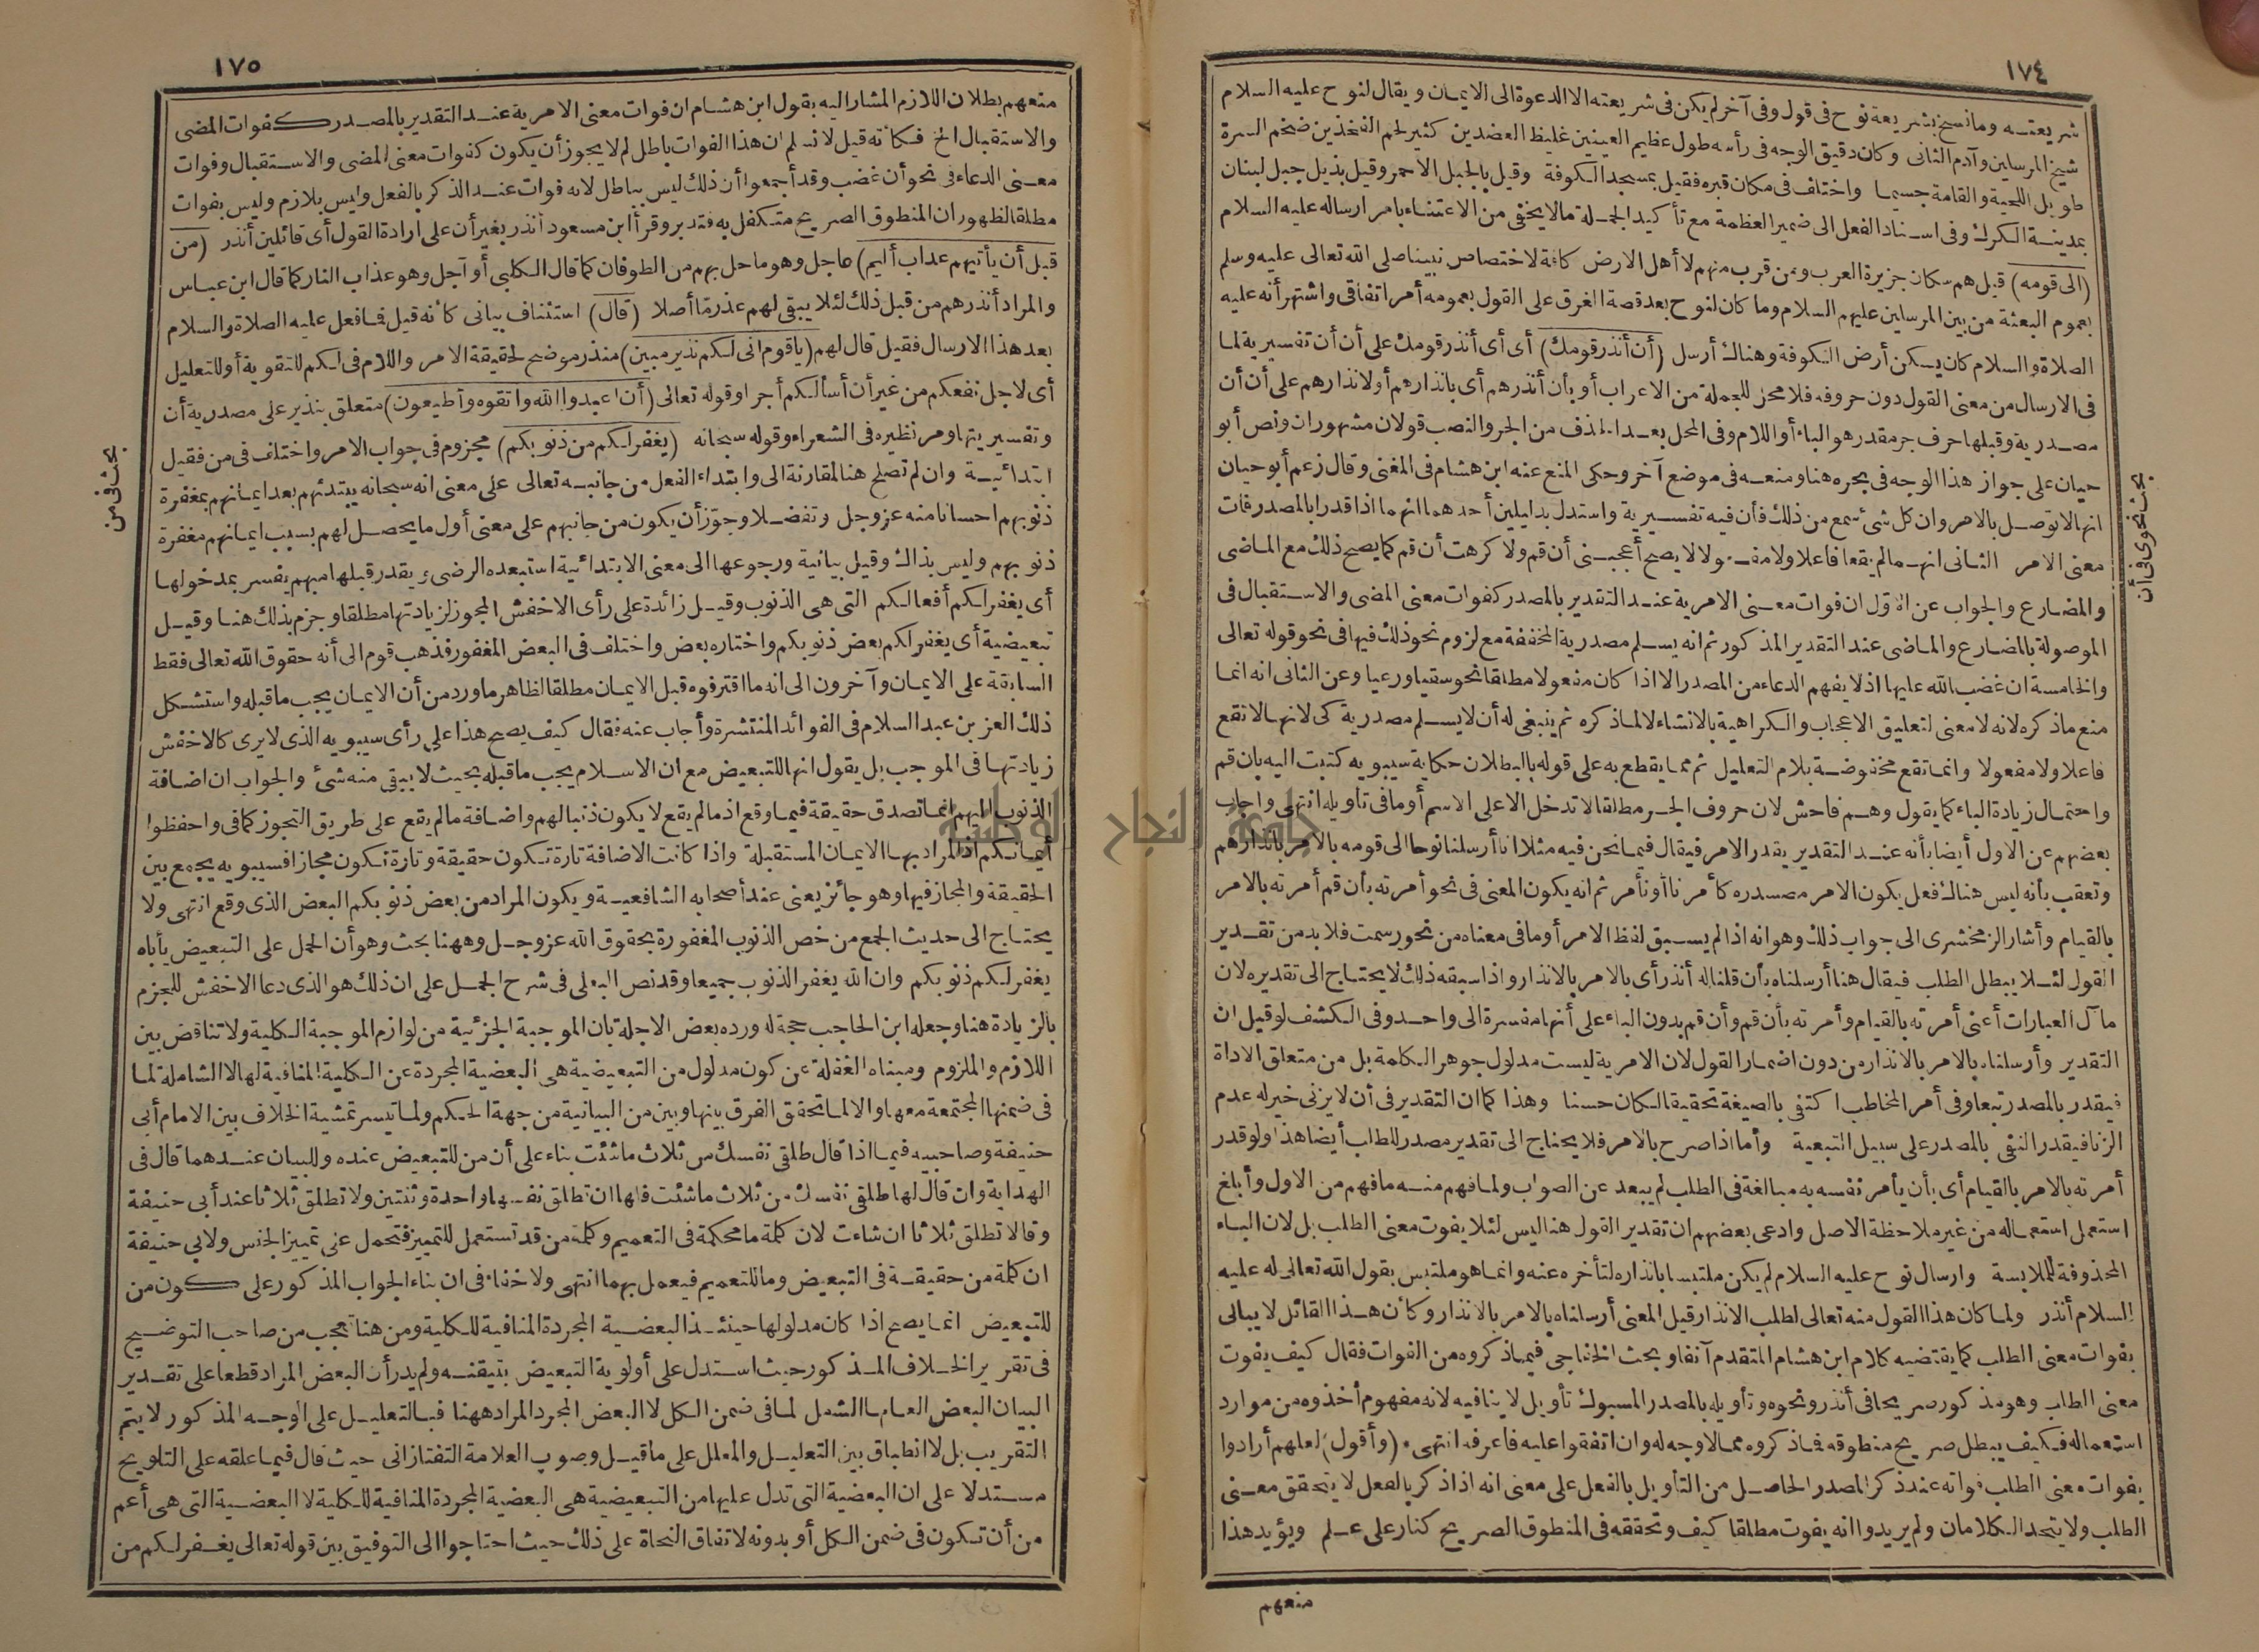 ١٧٤
شريعته وما نسخ بشريعة نوح في قول وفي آخر لم يكن في شريعته الا الدعوة الى الايمان ويقال لنوح عليه السلام
شيخ المرسلين وآدم الثاني وكان دقيق الوجه في رأسه طول عظيم العينين غليظ العضدين كثير لحم الفخذين ضخم السرة
طويل اللحية والقامة جسيما واختلف في مكان قبره فقيل بمسجد الكوفة وقيل بالجبل الاحمر وقيل بذيل جبل لبنان
بمدينة الكرك وفي اسناد الفعل الى ضمير العظمة مع تأكيد الجملة ما لا يخفى من الاعتناء بامر ارساله عليه السلام
(الى قومه) قيل هم سكان جزيرة العرب ومن قرب منهم لا أهل الارض كافة لاختصاص نبينا صلى الله تعالى عليه وسلم
بعموم البعثة من بين المرسلين عليهم السلام وما كان لنوح بعد قصة الغرق على القول بعمومه أمر اتفاقي واشتهر أنه عليه
الصلاة والسلام كان يسكن أرض الكوفة وهناك أرسل (أن أنذر قومك) أى أى أنذر قومك على أن أن تفسيرية لما
في الارسال من معنى القول دون حروفه فلا محل للجملة من الاعراب أو بأن أنذرهم أى بانذارهم أو لانذارهم على أن أن
مصدرية وقبلها حرف جر مقدر هو الباء أو اللام وفي المحل بعد الحذف من الجر والنصب قولان مشهوران ونص أبو
حيان على جواز هذا الوجه في بحره هنا ومنعه في موضع آخر وحكى المنع عنه ابن هشام في المغنى وقال زعم أبو حيان
انها لا توصل بالامر وان كل شئ سمع من ذلك فأن فيه تفسيرية واستدل بدليلين أحدهما انهما اذا قدرا بالمصدر فات
معنى الامر الثاني انهما لم يقعا فاعلا ولا مفعولا لا يصح أعجبني أن قم ولا كرهت أن قم كما يصح ذلك مع الماضى
والمضارع والجواب عن الاول ان فوات معنى الامرية عند التقدير بالمصدر كفوات معنى المضى والاستقبال في
الموصولة بالمضارع والماضى عند التقدير المذكور ثم انه يسلم مصدرية المخففة مع لزوم نحو ذلك فيها في نحو قوله تعالى
والخامسة ان غضب الله عليها اذ لا يفهم الدعاء من المصدر الا اذا كان مفعولا مطلقا نحو سقيا ورعيا وعن الثاني انه انما
منع ما ذكره لانه لا معنى لتعليق الاعجاب والكراهية بالانشاء لا لما ذكره ثم ينبغي له أن لا يسلم مصدرية كى لانها لا تقع
فاعلا ولا مفعولا وانما تقع مخفوضة بلام التعليل ثم مما يقطع به على قوله بالبطلان حكاية سيبويه كتبت اليه بان قم
واحتمال زيادة الباء كما يقول وهم فاحش لان حروف الجر مطلقا لا تدخل الا على الاسم أو ما في تاويله انتهى وأجاب
بعضهم عن الاول أيضا بأنه عند التقدير يقدر الامر فيقال فيما نحن فيه مثلا انا أرسلنا نوحا الى قومه بالامر بانذارهم
وتعقب بأنه ليس هناك فعل يكون الامر مصدره كأمرنا أو نأمر ثم انه يكون المعنى في نحو أمرته بأن قم أمرته بالامر
بالقيام وأشار الزمخشرى الى جواب ذلك وهو انه اذا لم يسبق لفظ الامر أو ما في معناه من نحو رسمت فلا بد من تقدير
القول لئلا يبطل الطلب فيقال هنا أرسلناه بأن قلنا له أنذر أى بالامر بالانذار واذا سبقه ذلك لا يحتاج الى تقديره لان
مآل العبارات أعنى أمرته بالقيام وأمرته بأن قم وأن قم بدون الباء على أنها مفسرة الى واحد وفي الكشف لو قيل ان
التقدير وأرسلناه بالامر بالانذار من دون اضمار القول لان الامرية ليست مدلول جوهر الكلمة بل من متعلق الاداة
فيقدر بالمصدر تبعا وفي أمر المخاطب اكتفى بالصيغة تحقيقا لكان حسنا وهذا كما ان التقدير في أن لا يزنى خير له عدم
الزنا فيقدر النفى بالمصدر على سبيل التبعية وأما اذا صرح بالامر فلا يحتاج الى تقدير مصدر للطلب أيضا هذا ولو قدر
أمرته بالامر بالقيام أى بأن يأمر نفسه به مبالغة في الطلب لم يبعد عن الصواب ولما فهم منه ما فهم من الاول وأبلغ
استعمل استعماله من غير ملاحظة الاصل وادعى بعضهم ان تقدير القول هنا ليس لئلا يفوت معنى الطلب بل لان الباء
المحذوفة للملابسة وارسال نوح عليه السلام لم يكن ملتبسا بانذاره لتأخره عنه وانما هو ملتبس بقول الله تعالى له عليه
السلام أنذر ولما كان هذا القول منه تعالى لطلب الانذار قيل المعنى أرسلناه بالامر بالانذار وكأن هذا القائل لا يبالى
بفوات معنى الطلب كما يقتضيه كلام ابن هشام المتقدم آنفا وبحث الخفاجى فيما ذكروه من الفوات فقال كيف يفوت
معنى الطلب وهو مذكور صريحا في أنذر ونحوه وتأويله بالمصدر المسبوك تأويل لا ينافيه لانه مفهوم أخذوه من موارد
استعماله فكيف يبطل صريح منطوقه فما ذكروه مما لا وجه له وان اتفقوا عليه فاعرفه انتهى. (وأقول) لعلهم أرادوا
بفوات معنى الطلب فواته عند ذكر المصدر الحاصل من التأويل بالفعل على معنى انه اذا ذكر بالفعل لا يتحقق معنى
الطلب ولا يتحد الكلامان ولم يريدوا انه يفوت مطلقا كيف وتحققه في المنطوق الصريح كنار على علم ويؤيد هذا
منعهم
بحث نحوى في أن
١٧٥
منعهم بطلان اللازم المشار اليه بقول ابن هشام ان فوات معنى الامرية عند التقدير بالمصدر كفوات المضى
والاستقبال الخ فكأنه قيل لا نسلم ان هذا الفوات باطل لم لا يجوز أن يكون كفوات معنى المضى والاستقبال وفوات
معنى الدعاء في نحو أن غضب وقد أجمعوا أن ذلك ليس بباطل لانه فوات عند الذكر بالفعل وليس بلازم وليس بفوات
مطلقا لظهور ان المنطوق الصريح متكفل به فتدبر وقرأ ابن مسعود أنذر بغير أن على ارادة القول أى قائلين أنذر (من
قبل أن يأتيهم عذاب أليم) عاجل وهو ما حل بهم من الطوفان كما قال الكلبى أو آجل وهو عذاب النار كما قال ابن عباس
والمراد أنذرهم من قبل ذلك لئلا يبقى لهم عذر ما أصلا (قال) استئناف بيانى كأنه قيل فما فعل عليه الصلاة والسلام
بعد هذا الارسال فقيل قال لهم (يا قوم انى لكم نذير مبين) منذر موضح لحقيقة الامر واللام في لكم للتقوية أو للتعليل
أى لاجل نفعكم من غير أن أسألكم أجرا وقوله تعالى (أن اعبدوا الله واتقوه وأطيعون) متعلق بنذير على مصدرية أن
وتفسيريتها ومر نظيره في الشعراء وقوله سبحانه (يغفر لكم من ذنوبكم) مجزوم في جواب الامر واختلف في من فقيل
ابتدائية وان لم تصلح هنا لمقارنة الى وابتداء الفعل من جانبه تعالى على معنى انه سبحانه يبتدئهم بعد ايمانهم بمغفرة
ذنوبهم احسانا منه عز وجل وتفضلا وجوز أن يكون من جانبهم على معنى أول ما يحصل لهم بسبب ايمانهم مغفرة
ذنوبهم وليس بذاك وقيل بيانية ورجوعها الى معنى الابتدائية استبعده الرضى ويقدر قبلها مبهم يفسر بمدخولها
أى يغفر لكم أفعالكم التى هى الذنوب وقيل زائدة على رأى الاخفش المجوز لزيادتها مطلقا وجزم بذلك هنا وقيل
تبعيضية أى يغفر لكم بعض ذنوبكم واختاره بعض واختلف في البعض المغفور فذهب قوم الى أنه حقوق الله تعالى فقط
السابقة على الايمان وآخرون الى انه ما اقترفوه قبل الايمان مطلقا لظاهر ما ورد من أن الايمان يجب ما قبله واستشكل
ذلك العز بن عبد السلام في الفوائد المنتشرة وأجاب عنه فقال كيف يصح هذا على رأى سيبويه الذى لا يرى كالاخفش
زيادتها في الموجب بل يقول انها للتبعيض مع ان الاسلام يجب ما قبله بحيث لا يبقى منه شئ والجواب ان اضافة
الذنوب اليهم انما تصدق حقيقة فيما وقع اذ ما لم يقع لا يكون ذنبا لهم واضافة ما لم يقع على طريق التجوز كما في واحفظوا
أيمانكم اذ المراد بها الايمان المستقبلة واذا كانت الاضافة تارة تكون حقيقة وتارة تكون مجازا فسيبويه يجمع بين
الحقيقة والمجاز فيها وهو جائز يعنى عند أصحابه الشافعية ويكون المراد من بعض ذنوبكم البعض الذى وقع انتهى ولا
يحتاج الى حديث الجمع من خص الذنوب المغفورة بحقوق الله عز وجل وههنا بحث وهو أن الحمل على التبعيض يأباه
يغفر لكم ذنوبكم وان الله يغفر الذنوب جميعا وقد نص البعلى في شرح الجمل على ان ذلك هو الذى دعا الاخفش للجزم
بالزيادة هنا وجعله ابن الحاجب حجة له ورده بعض الاجلة بان الموجبة الجزئية من لوازم الموجبة الكلية ولا تناقض بين
اللازم والملزوم ومبناه الغفلة عن كون مدلول من التبعيضية هى البعضية المجردة عن الكلية المنافية لها لا الشاملة لما
في ضمنها المجتمعة معها والا لما تحقق الفرق بينها وبين من البيانية من جهة الحكم ولما تيسر تمشية الخلاف بين الامام أبى
حنيفة وصاحبيه فيما اذا قال طلقى نفسك من ثلاث ما شئت بناء على أن من للتبعيض عنده وللبيان عندهما قال في
الهداية وان قال لها طلقى نفسك من ثلاث ما شئت فلها ان تطلق نفسها واحدة وثنتين ولا تطلق ثلاثا عند أبى حنيفة
وقالا تطلق ثلاثا ان شاءت لان كلمة ما محكمة في التعميم وكلمة من قد تستعمل للتمييز فتحمل على تمييز الجنس ولابى حنيفة
ان كلمة من حقيقة في التبعيض وما للتعميم فيعمل بهما انتهى ولا خفاء في ان بناء الجواب المذكور على كون من
للتبعيض انما يصح اذا كان مدلولها حينئذ البعضية المجردة المنافية للكلية ومن هنا تعجب من صاحب التوضيح
في تقرير الخلاف المذكور حيث استدل على أولوية التبعيض بتيقنه ولم يدر أن البعض المراد قطعا على تقدير
البيان البعض العام الشامل لما في ضمن الكل لا البعض المجرد المراد ههنا فبالتعليل على الوجه المذكور لا يتم
التقريب بل لا انطباق بين التعليل والمعلل على ما قيل وصوب العلامة التفتازانى حيث قال فيما علقه على التلويح
مستدلا على ان البعضية التى تدل عليها من التبعيضية هى البعضية المجردة المنافية للكلية لا البعضية التى هى أعم
من أن تكون في ضمن الكل أو بدونه لاتفاق النحاة على ذلك حيث احتاجوا الى التوفيق بين قوله تعالى يغفر لكم من
بحث في من
جامعة النجاح الوطنية